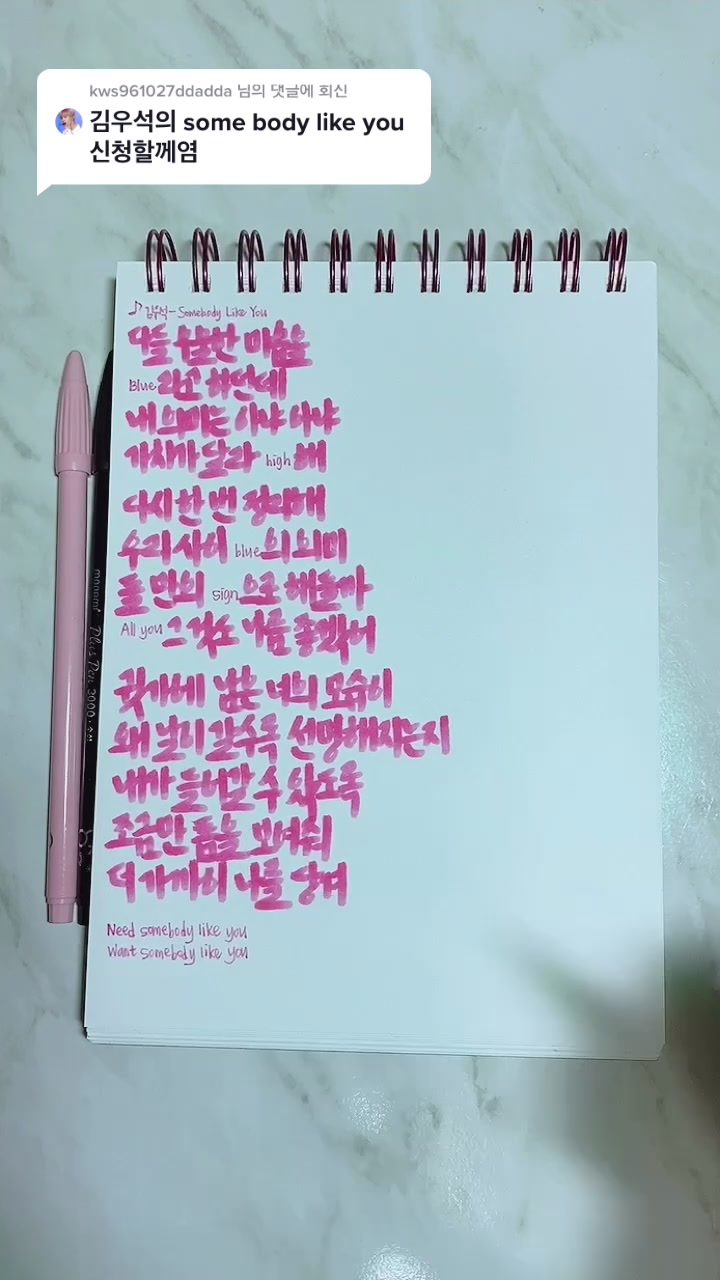 kws961027ddadda 님의 댓글에 회신
김우석의 some body like you
신청할께염
♪ 김우석 - Somebody Like You
다들 우울한 마음을
Blue라고 하던데
내 의미는 아냐 아냐
가치가 달라 high해
다시 한 번 정리해
우리 사이 blue의 의미
둘 만의 sign으로 해둘까
All you 그걸로 나를 좋겠어
귓가에 남은 너의 모습이
왜 날이 갈수록 선명해지는지
내가 들어갈 수 있도록
조금만 틈을 보여줘
더 가까이 나를 당겨
Need somebody like you
Want somebody like you
monami Plus Pen 3000